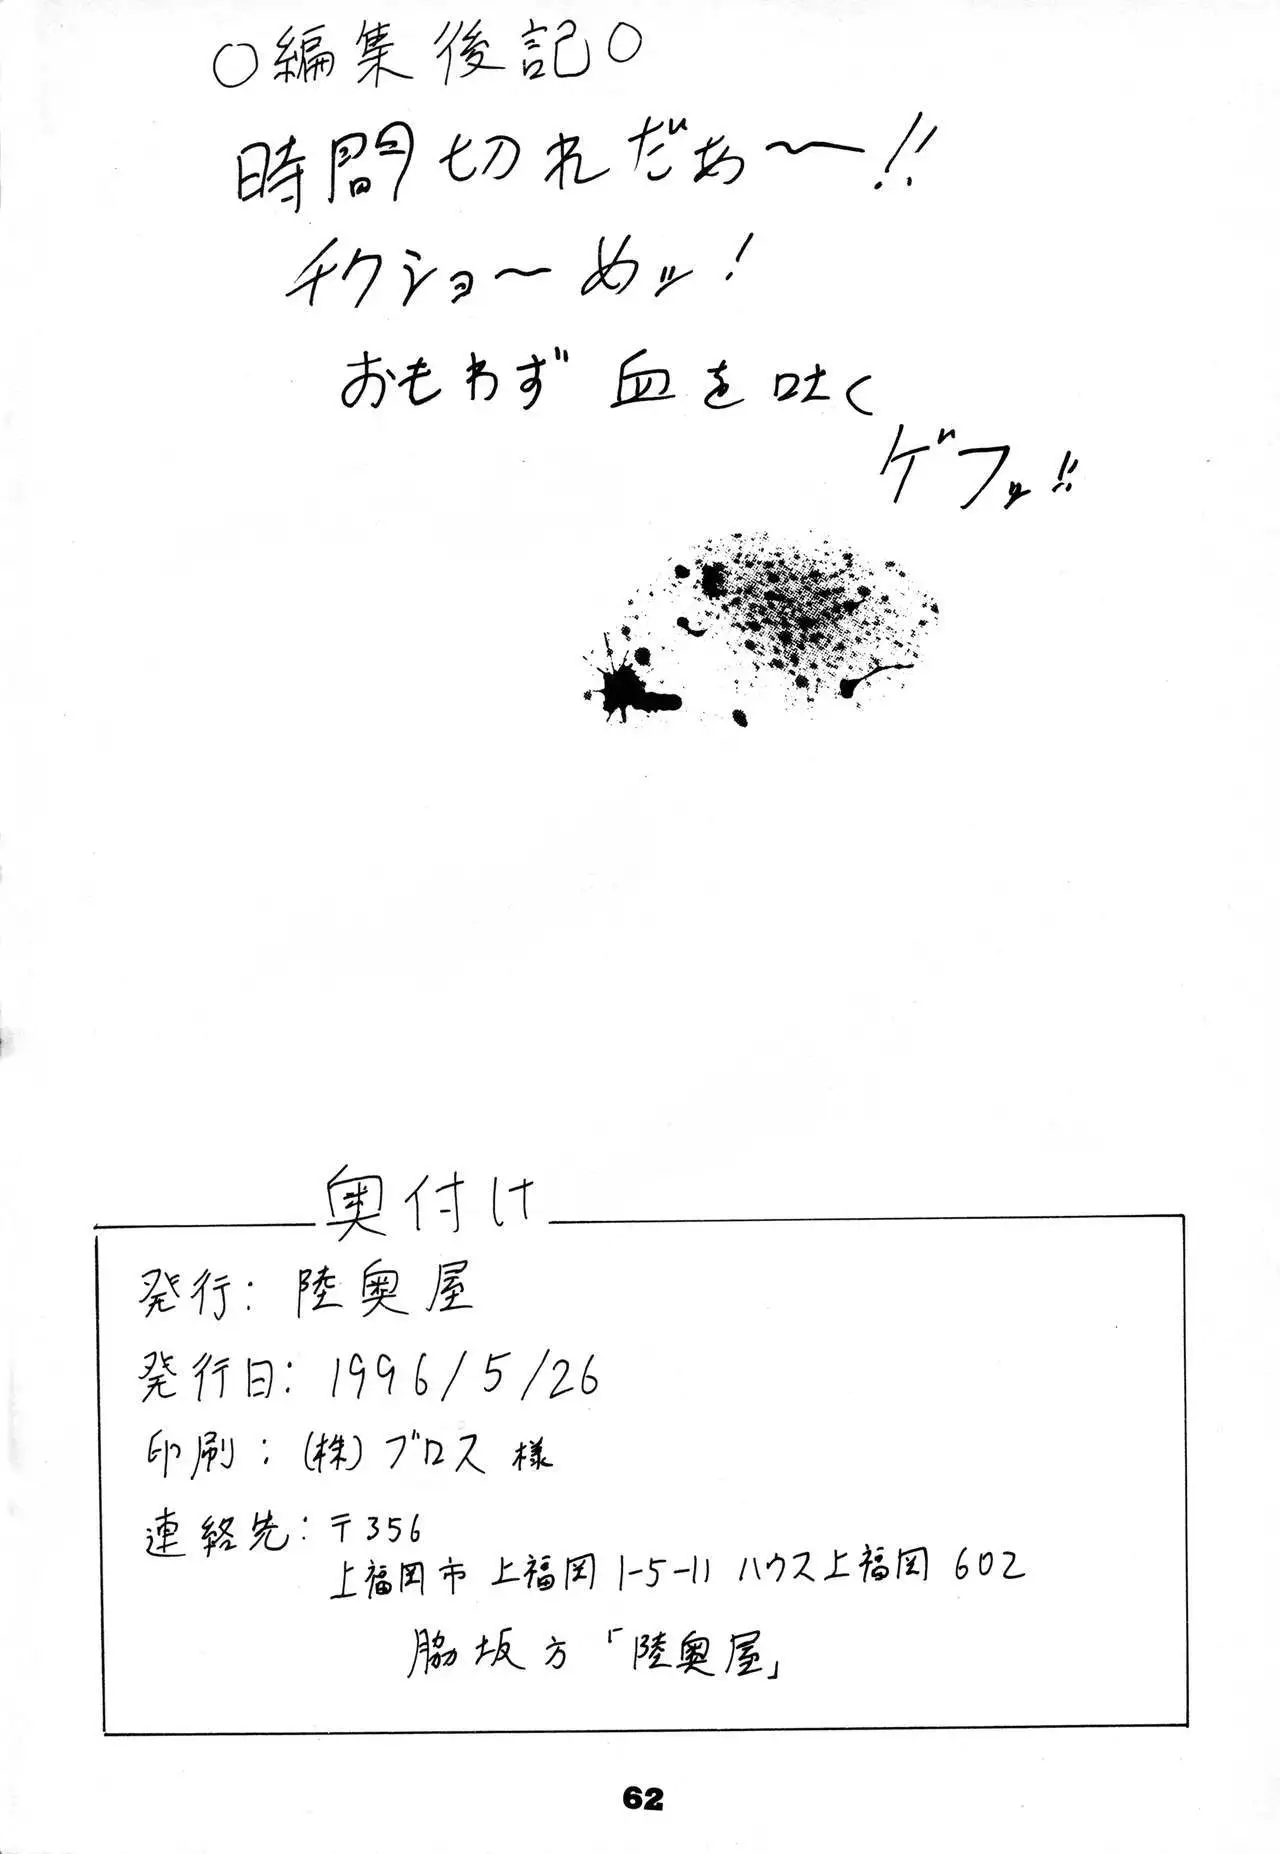 ○編集後記○
時間切れだぁ〜!!
チクショ〜めッ!
おもわず血を吐く
ゲフッ!!
奥付け
発行:陸奥屋
発行日:1996/5/26
印刷:(株)ブロス様
連絡先:〒356
上福岡市 上福岡1-5-11 ハウス上福岡 602
脇坂方「陸奥屋」
62